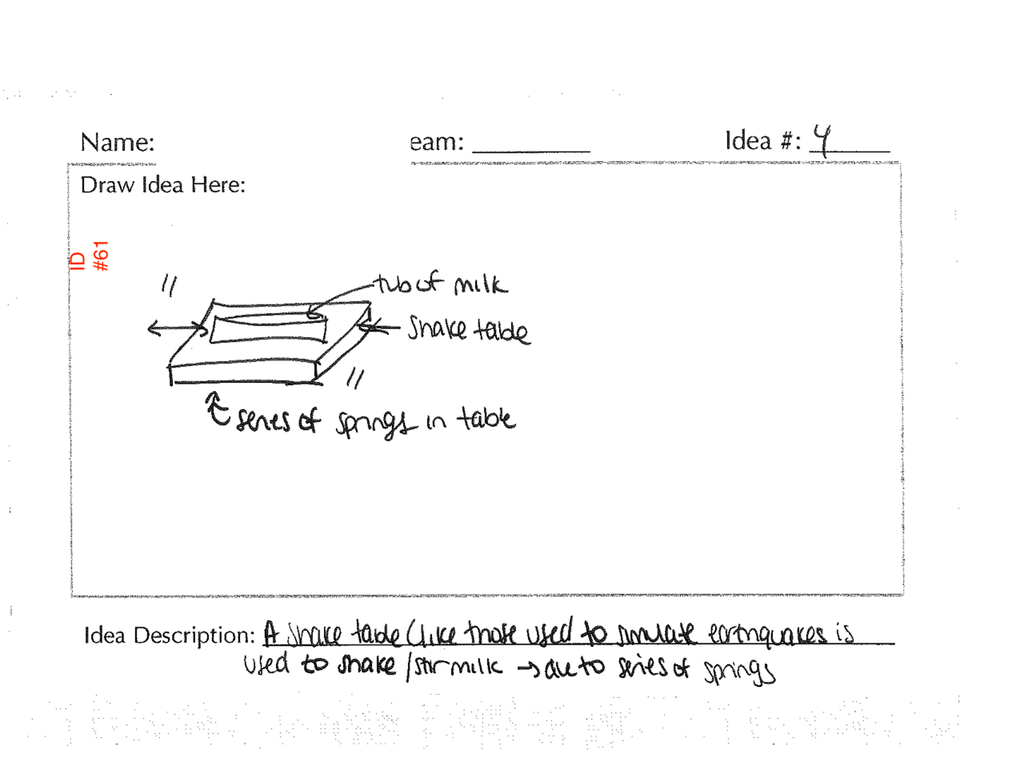 Name: eam: Idea #: 4
Draw Idea Here:
ID
#61
tub of milk
shake table
series of springs in table
Idea Description: A shake table (like those used to simulate earthquakes is
used to shake / stir milk → due to series of springs